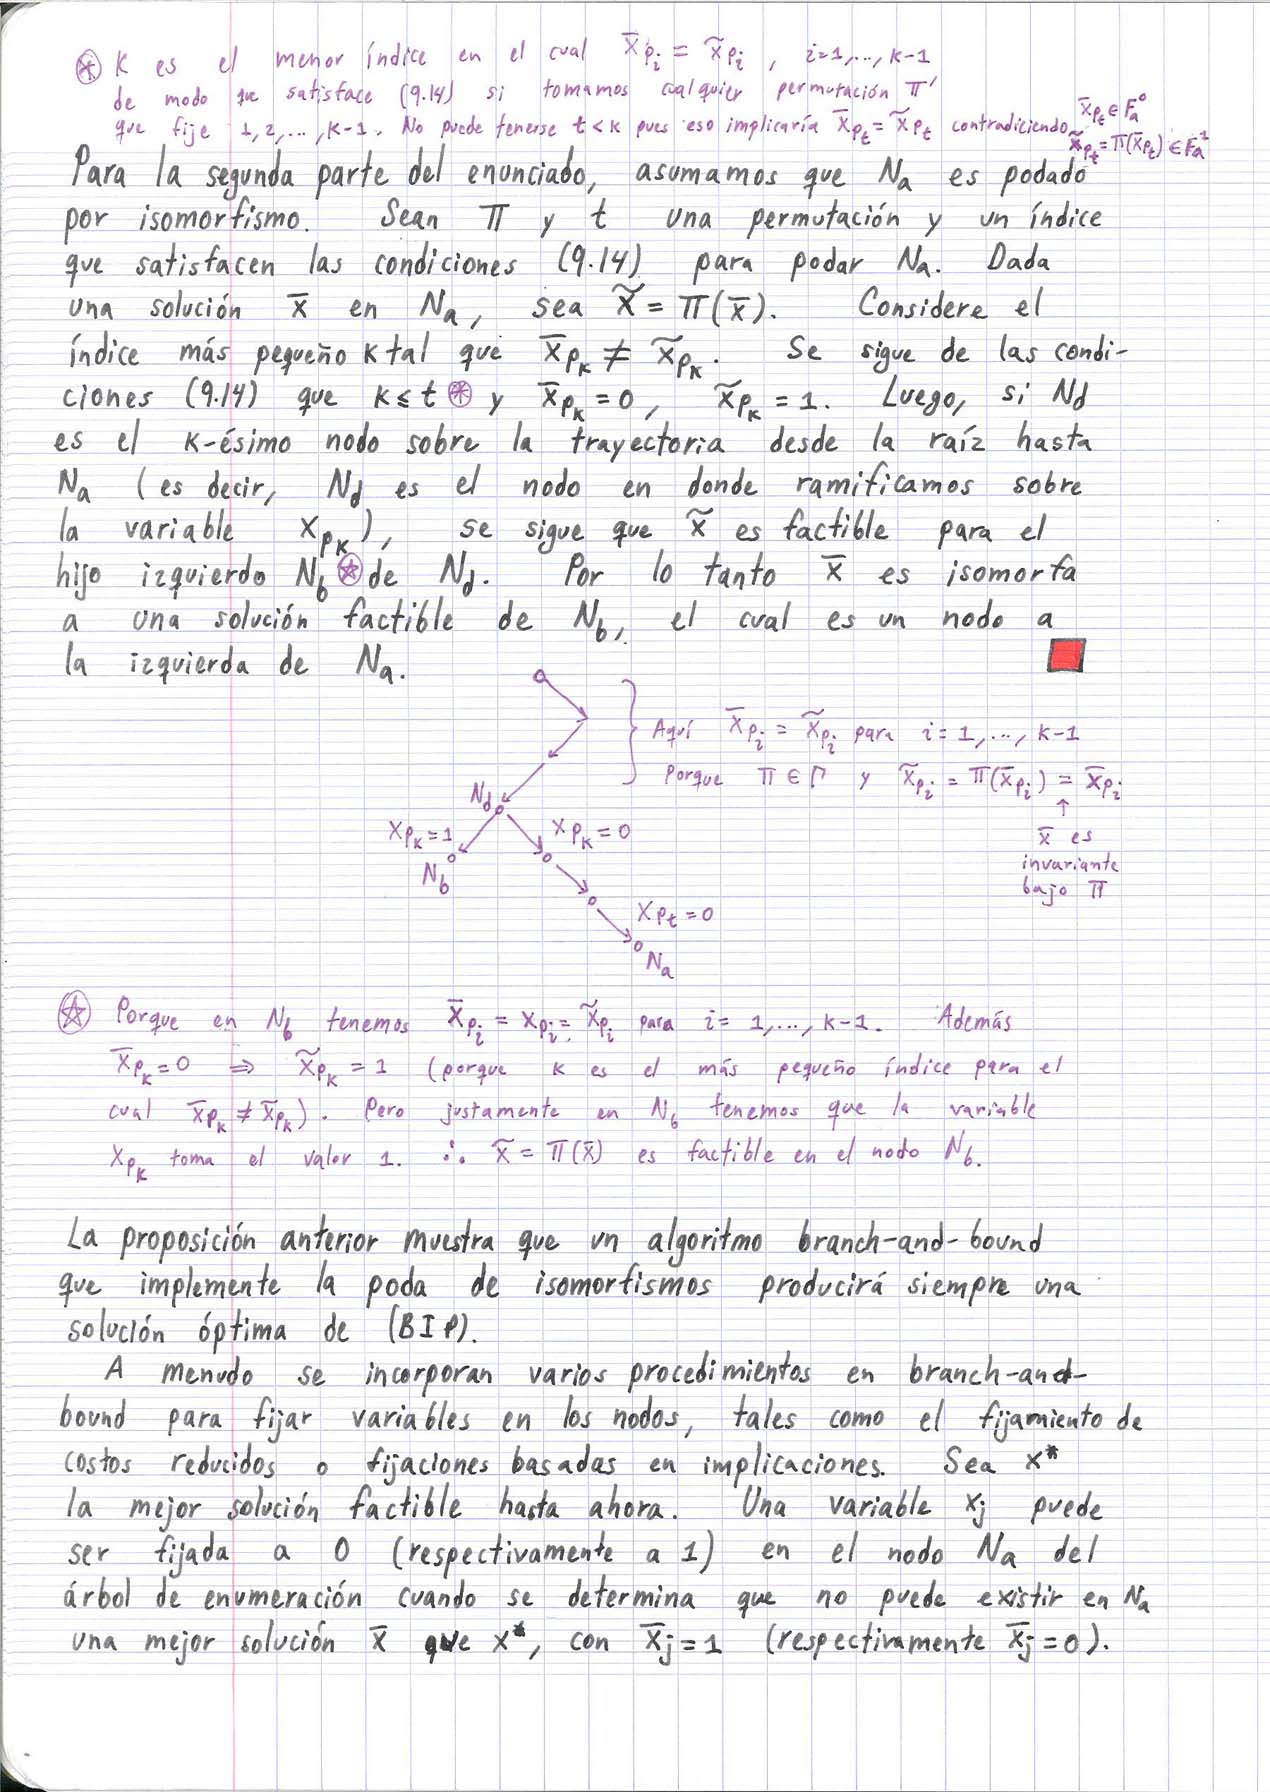 ⊛ K es el menor índice en el cual x̄_{p_i} = x̃_{p_i} , i=1,...,k-1
de modo que satisface (9.14) si tomamos cualquier permutación π'
que fije 1,2,...,k-1. No puede tenerse t<k pues eso implicaría x̄_{p_t} = x̃_{p_t} contradiciendo x̄_{p_t} ∈ F_a^0
x̃_{p_t} = π(x̄_{p_t}) ∈ F_a^1
Para la segunda parte del enunciado, asumamos que N_a es podado
por isomorfismo. Sean π y t una permutación y un índice
que satisfacen las condiciones (9.14) para podar N_a. Dada
una solución x̄ en N_a, sea x̃ = π(x̄). Considere el
índice más pequeño k tal que x̄_{p_k} ≠ x̃_{p_k}. Se sigue de las condi-
ciones (9.14) que k ≤ t ⊛ y x̄_{p_k} = 0, x̃_{p_k} = 1. Luego, si N_d
es el k-ésimo nodo sobre la trayectoria desde la raíz hasta
N_a (es decir, N_d es el nodo en donde ramificamos sobre
la variable x_{p_k}), se sigue que x̃ es factible para el
hijo izquierdo N_b ✪ de N_d. Por lo tanto x̄ es isomorfa
a una solución factible de N_b, el cual es un nodo a
la izquierda de N_a.
Aquí x̄_{p_i} = x̃_{p_i} para i=1,...,k-1
Porque π ∈ Γ y x̃_{p_i} = π(x̄_{p_i}) = x̄_{p_i}
↑
x̄ es
invariante
bajo π
N_d
x_{p_k}=1
x_{p_k}=0
N_b
x_{p_t}=0
N_a
✪ Porque en N_b tenemos x̄_{p_i} = x_{p_i} = x̃_{p_i} para i=1,...,k-1. Además
x̄_{p_k}=0 ⇒ x̃_{p_k} = 1 (porque k es el más pequeño índice para el
cual x̄_{p_k} ≠ x̄_{p_k}). Pero justamente en N_b tenemos que la variable
x_{p_k} toma el valor 1. ∴ x̃ = π(x̄) es factible en el nodo N_b.
La proposición anterior muestra que un algoritmo branch-and-bound
que implemente la poda de isomorfismos producirá siempre una
solución óptima de (BIP).
A menudo se incorporan varios procedimientos en branch-and-
bound para fijar variables en los nodos, tales como el fijamiento de
costos reducidos o fijaciones basadas en implicaciones. Sea x*
la mejor solución factible hasta ahora. Una variable x_j puede
ser fijada a 0 (respectivamente a 1) en el nodo N_a del
árbol de enumeración cuando se determina que no puede existir en N_a
una mejor solución x̄ que x*, con x̄_j=1 (respectivamente x̄_j=0).